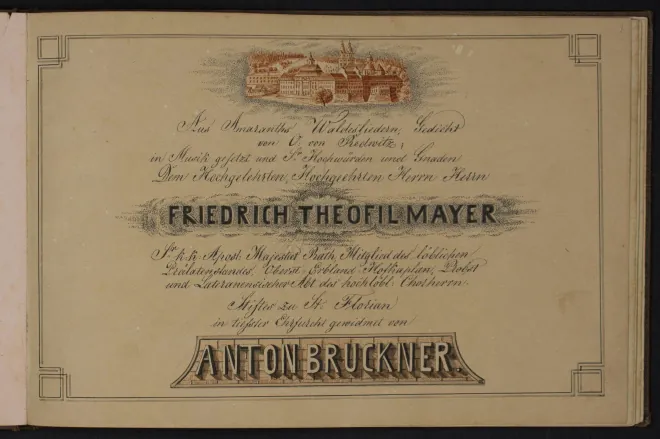 Aus Amaranths Waldesliedern, Gedicht
von O. von Redwitz,
in Musik gesetzt und Sr. Hochwürden und Gnaden
Dem Hochgelehrten, Hochgeehrten Herrn Herrn
FRIEDRICH THEOFIL MAYER
Sr. k. k. Apost. Majestät Rath, Mitglied des löblichen
Prälatenstandes, Oberst-Erbland-Hofkaplan, Probst
und Lateranensischer Abt des hochlöbl. Chorherrn
Stiftes zu St. Florian
in tiefster Ehrfurcht gewidmet von
ANTON BRUCKNER.